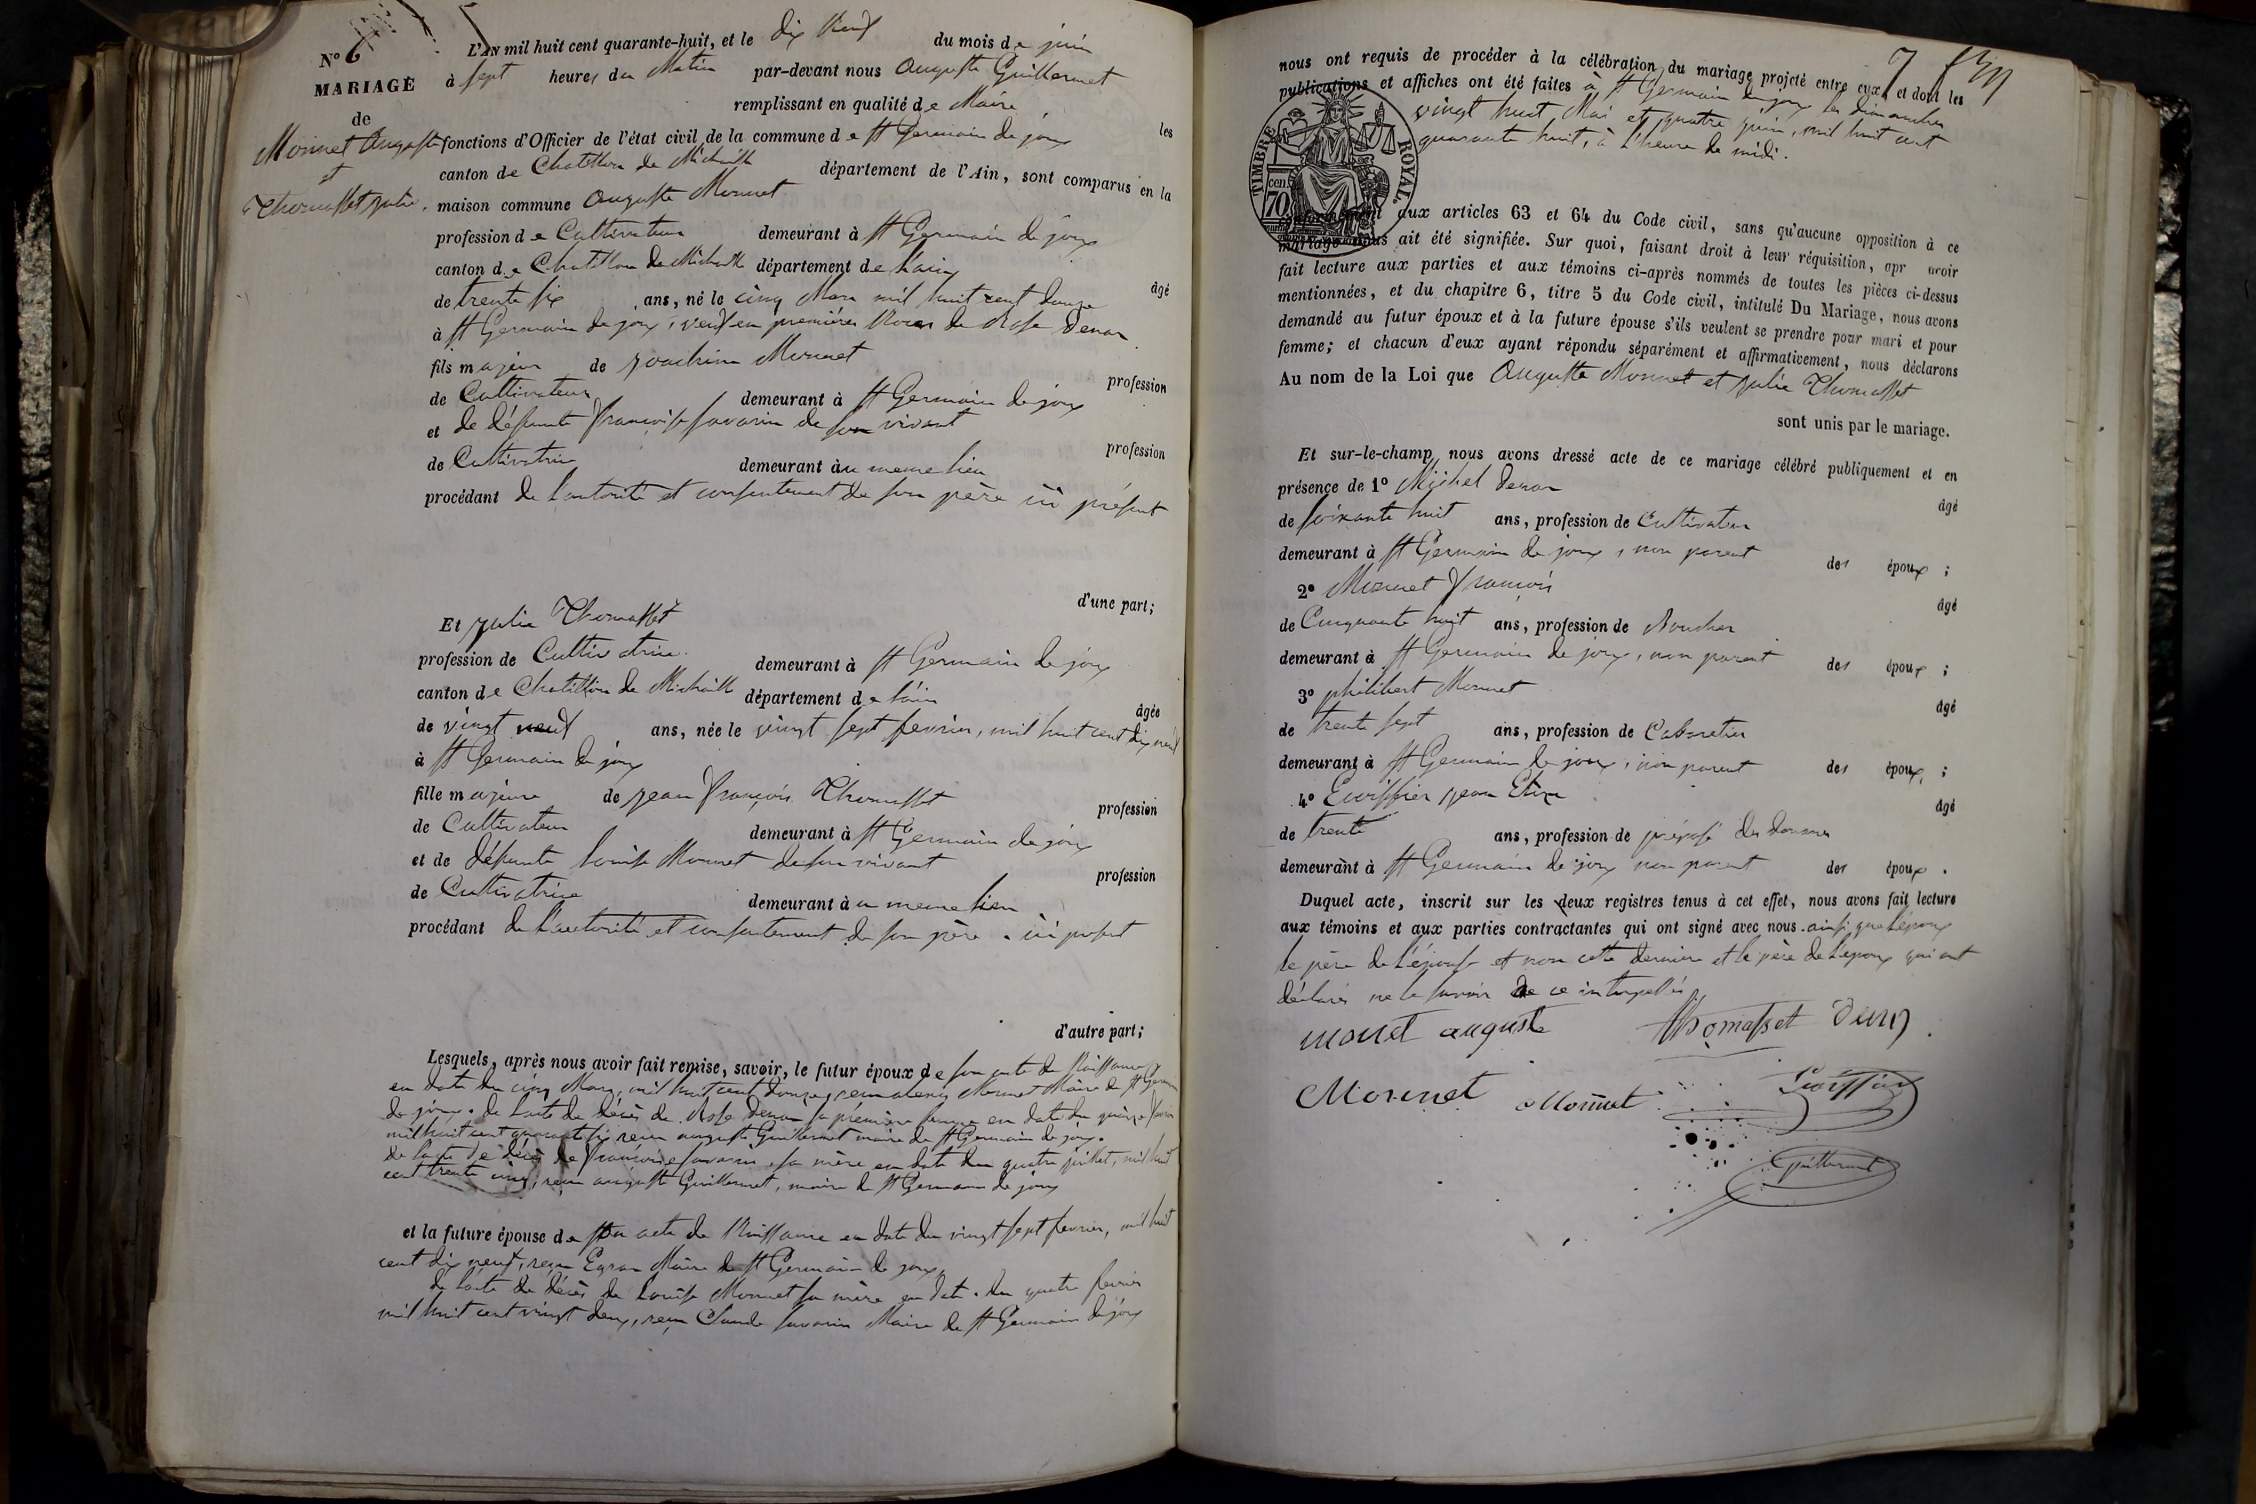 N° 6
MARIAGE
de
Monnet Auguste
et
Thomasset Julie.
L'AN mil huit cent quarante-huit, et le dix Neuf du mois de juin
à sept heures du Matin par-devant nous Auguste Guillermet
remplissant en qualité de Maire les
fonctions d'Officier de l'état civil de la commune de St Germain de joux
canton de Chatillon de Michaille département de l'Ain, sont comparus en la
maison commune Auguste Monnet
profession de Cultivateur demeurant à St Germain de joux
canton de Chatillon de Michaille département de l'ain âgé
de trente six ans, né le cinq Mars mil huit cent douze
à St Germain de joux, veuf en premières Noces de Rose Denon
fils majeur de joachim Monnet profession
de Cultivateur demeurant à St Germain de joux
et de défunte françoise favarin de son vivant profession
de Cultivatrice demeurant au meme lieu
procédant de l'autorité et consentement de son père ici présent
d'une part;
Et julie Thomasset
profession de Cultivatrice. demeurant à St Germain de joux
canton de Chatillon de Michaille département de l'ain âgée
de vingt neuf ans, née le vingt sept fevrier, mil huit cent dix neuf
à St Germain de joux
fille majeure de jean françois Thomasset profession
de Cultivateur demeurant à St Germain de joux
et de défunte louise Monnet de son vivant profession
de Cultivatrice demeurant au meme lieu
procédant de l'autorité et consentement de son père ici présent
d'autre part;
Lesquels, après nous avoir fait remise, savoir, le futur époux de son acte de Naissance
en date du cinq Mars, mil huit cent douze, reçu alexis Monnet Maire de St Germain
de joux. de l'acte de décès de Rose Denon sa première femme en date du quinze fevrier
mil huit cent quarante six reçu auguste Guillermet maire de St Germain de joux.
de l'acte de décès de françoise favarin, sa mère en date du quatre juillet, mil huit
cent trente cinq, reçu auguste Guillermet, maire de St Germain de joux
et la future épouse de son acte de Naissance en date du vingt sept fevrier, mil huit
cent dix neuf, reçu Egraz Maire de St Germain de joux,
de l'acte de décès de Louise Monnet sa mère en date du quatre fevrier
mil huit cent vingt deux, reçu Claude favarin Maire de St Germain de joux
7
nous ont requis de procéder à la célébration du mariage projeté entre eux, et dont les
publications et affiches ont été faites à St Germain de joux les dimanches
vingt huit Mai et quatre juin, mil huit cent
quarante huit, à l'heure de midi.
TIMBRE ROYAL
70 cen.
conformément aux articles 63 et 64 du Code civil, sans qu'aucune opposition à ce
mariage nous ait été signifiée. Sur quoi, faisant droit à leur réquisition, apr avoir
fait lecture aux parties et aux témoins ci-après nommés de toutes les pièces ci-dessus
mentionnées, et du chapitre 6, titre 5 du Code civil, intitulé Du Mariage, nous avons
demandé au futur époux et à la future épouse s'ils veulent se prendre pour mari et pour
femme; et chacun d'eux ayant répondu séparément et affirmativement, nous déclarons
Au nom de la Loi que Auguste Monnet et julie Thomasset
sont unis par le mariage.
Et sur-le-champ nous avons dressé acte de ce mariage célébré publiquement et en
présence de 1° Michel Denon âgé
de soixante huit ans, profession de Cultivateur
demeurant à St Germain de joux, non parent des époux;
2° Monnet françois âgé
de Cinquante huit ans, profession de Boucher
demeurant à St Germain de joux, non parent des époux;
3° philibert Monnet âgé
de trente sept ans, profession de Cabaretier
demeurant à St Germain de joux, non parent des époux;
4° jean âgé
de trente ans, profession de préposé des douanes
demeurant à St Germain de joux non parent des époux.
Duquel acte, inscrit sur les deux registres tenus à cet effet, nous avons fait lecture
aux témoins et aux parties contractantes qui ont signé avec nous. ainsi que l'époux
le père de l'épouse et non cette dernière et le père de l'époux qui ont
déclarés ne le savoir de ce interpellés
monet auguste Thomasset
Monnet Monnet
Guillermet